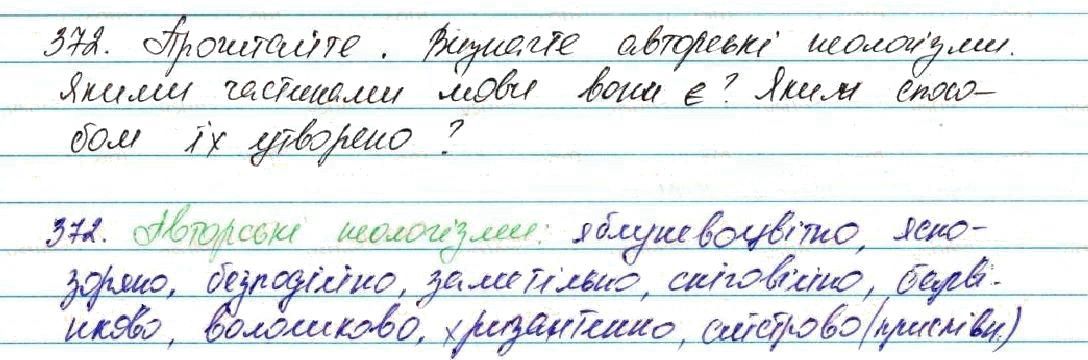 372. Прочитайте. Визначте авторські неологізми.
Якими частинами мови вони є? Яким спосо-
бом їх утворено?
372. Авторські неологізми: яблуневоцвітно, ясно-
зоряно, безподійно, заметільно, сніговійно, барві-
нково, волошково, хризантемно, айстрово (прислівн.)